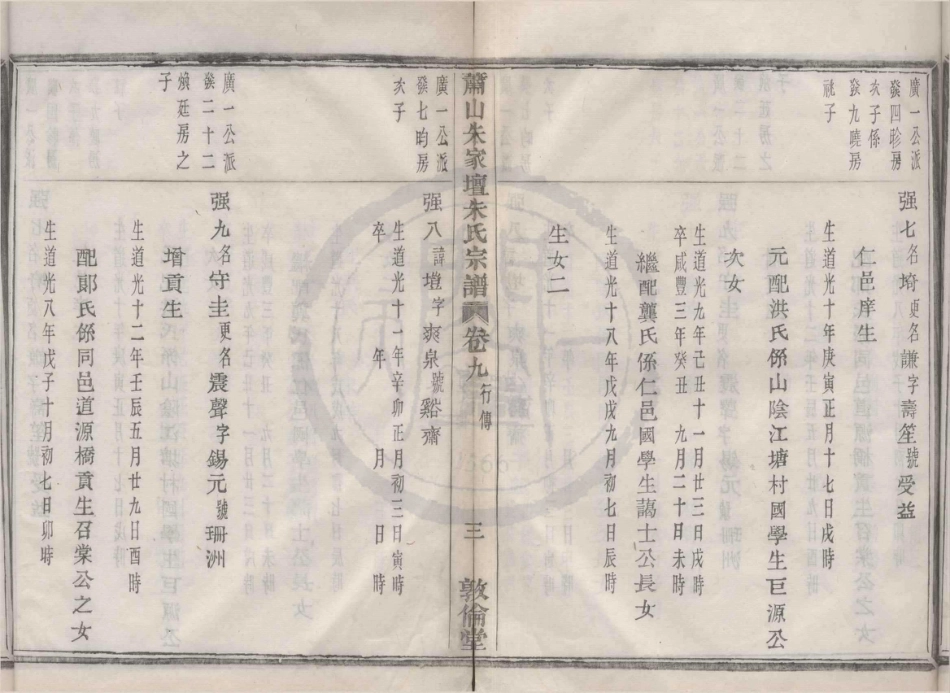 廣一公派
發四聄房
次子係
發九曉房
祧子
强七名埼更名謙字壽笙號受益
仁邑庠生
生道光十年庚寅正月十七日戌時
元配洪氏係山陰江塘村國學生巨源公
次女
生道光九年己丑十一月廿三日戌時
卒咸豐三年癸丑 九月二十日未時
繼配龔氏係仁邑國學生藹士公長女
生道光十八年戊戌九月初七日辰時
生女二
蕭山朱家壇朱氏宗譜 卷九 行傳 三 敦倫堂
廣一公派
發七昀房
次子
强八諱塏字爽泉號谿齋
生道光十一年辛卯正月初三日寅時
卒 年 月 日 時
廣一公派
發二十二
煥廷房之
子
强九名守圭更名震聲字錫元號珊洲
增貢生
生道光十二年壬辰五月廿九日酉時
配郎氏係同邑道源橋貢生召棠公之女
生道光八年戊子十月初七日卯時